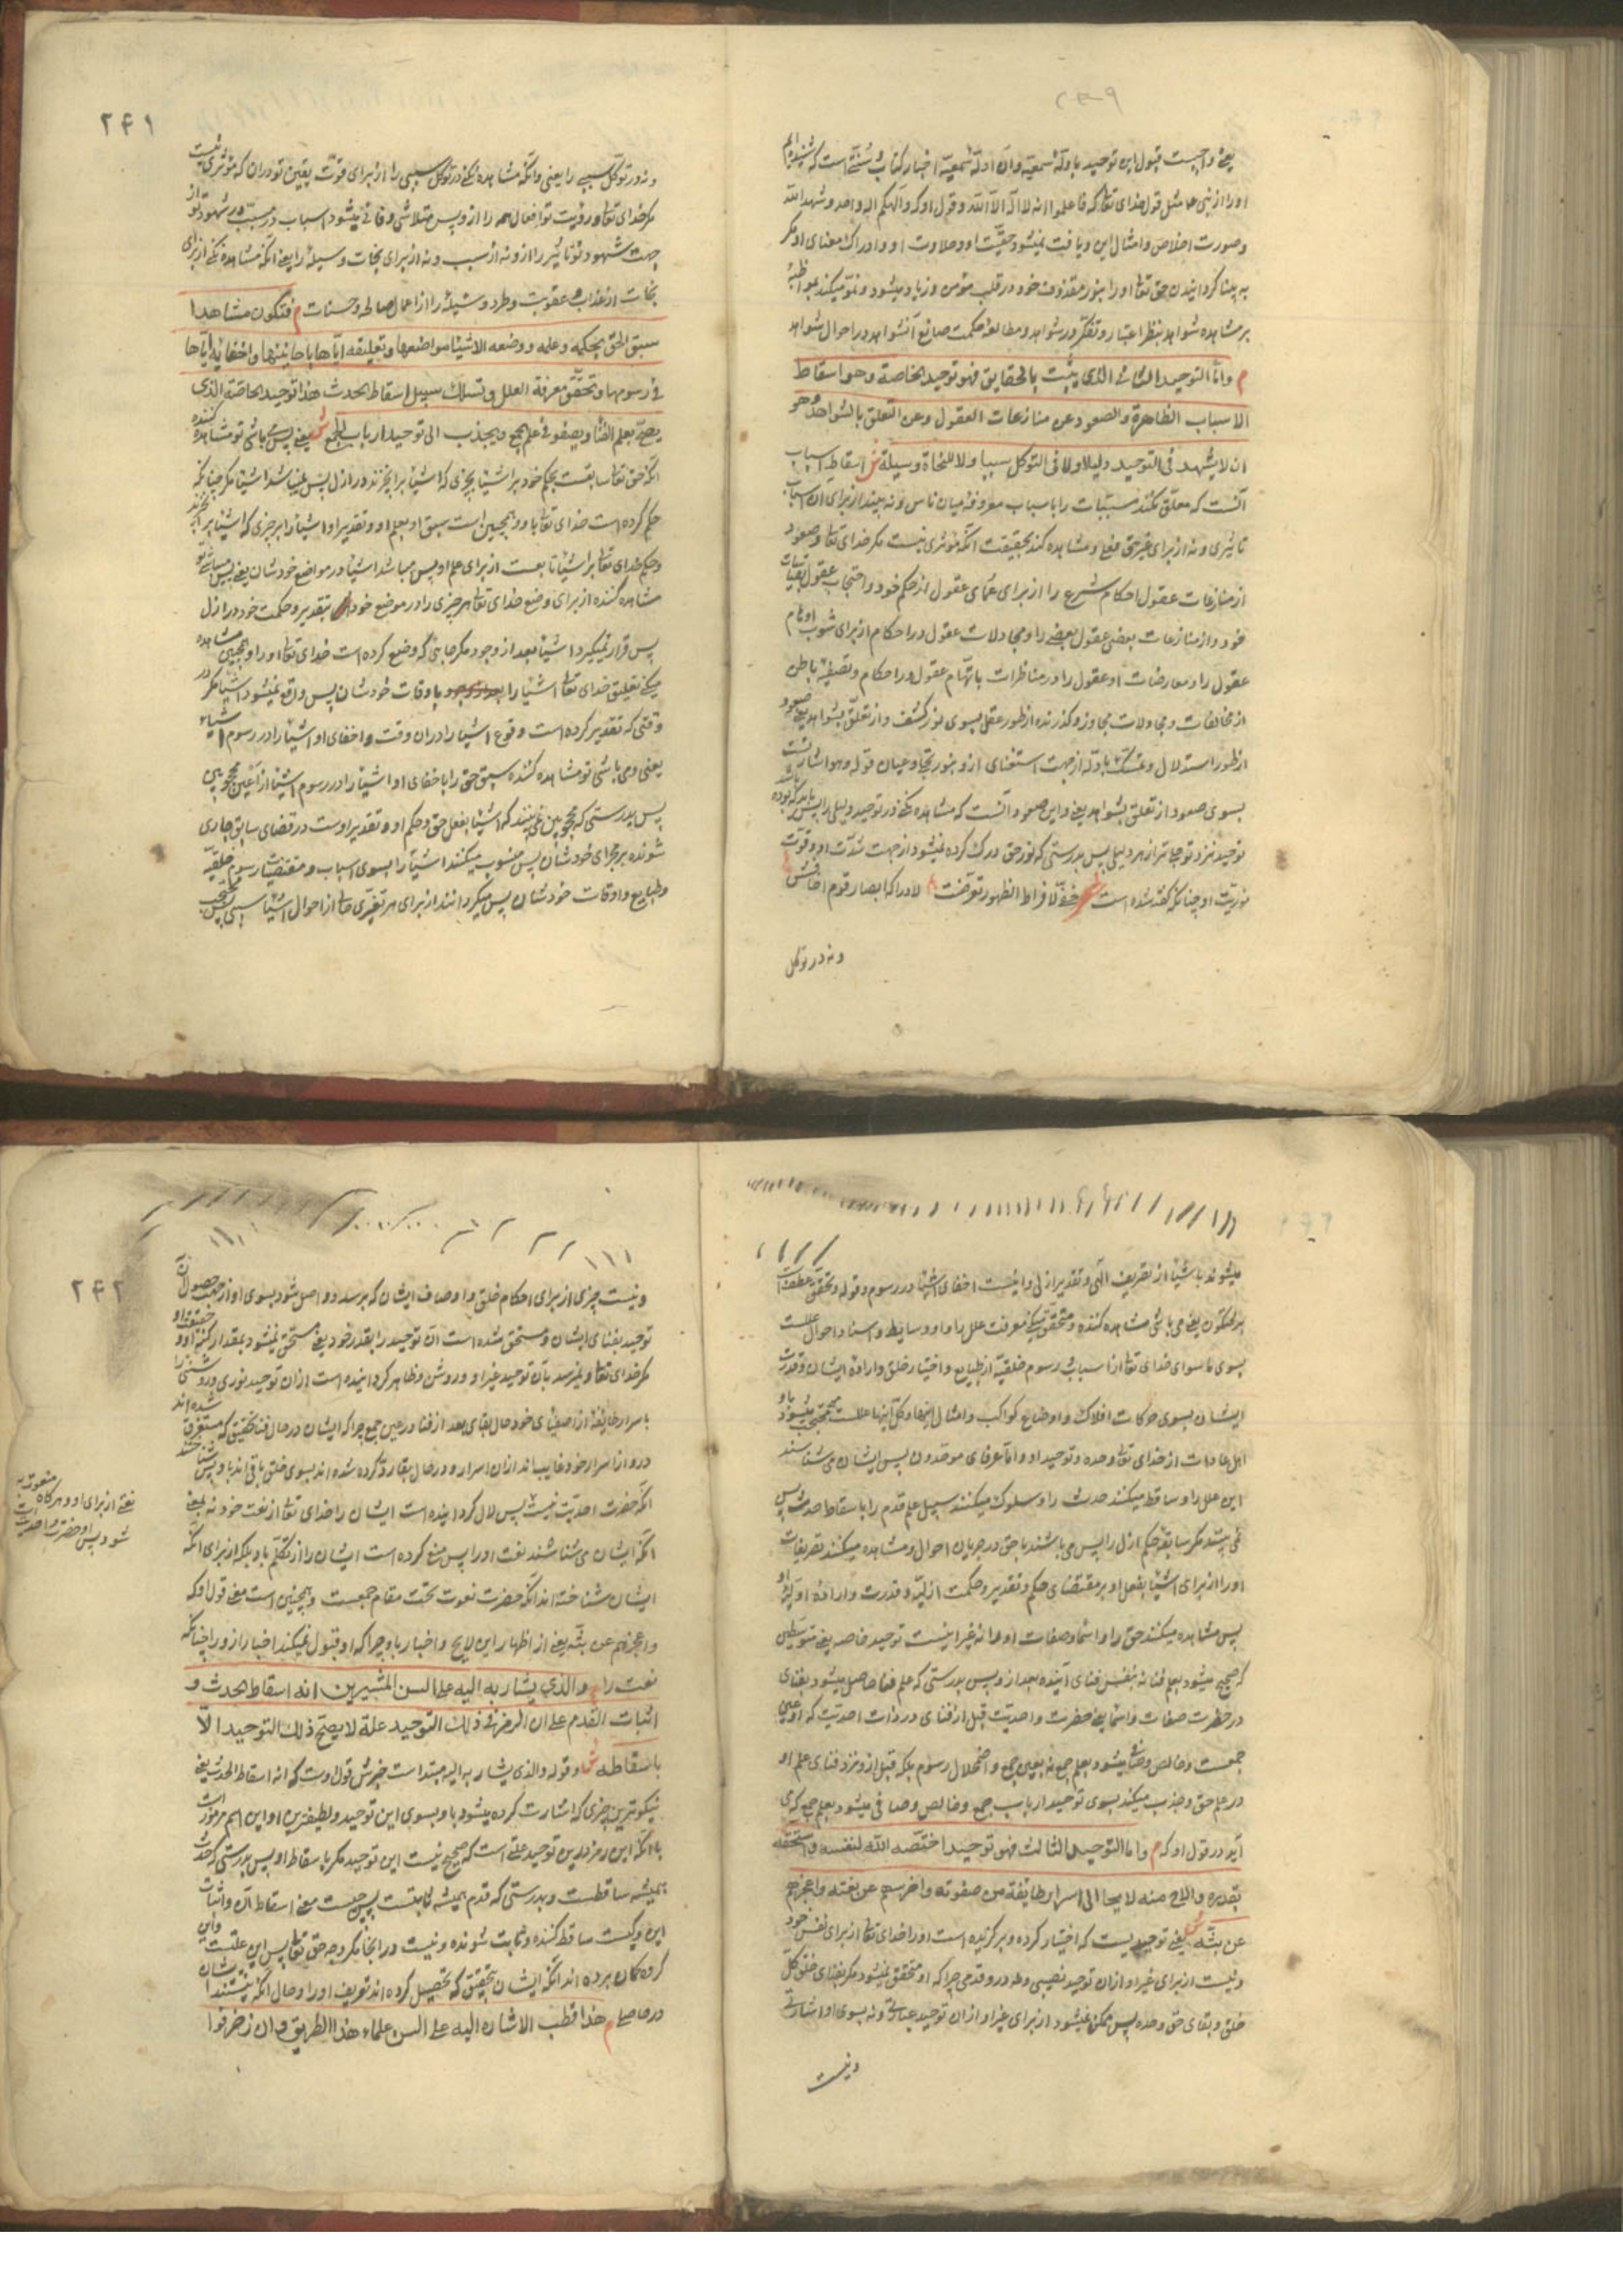 یعنی واجبست قبول این توحید بادلهٔ سمعیه وآن ادلهٔ سمعیه اخبار کتاب و سنت است که شنیده ایم
اورا از نبی ما مثل قول خدای تعالی که فاعلموا انه لا اله الا الله وقول او که والهکم اله واحد وشهد الله
وصورت اخلاص وامثال این ویافت نمیشود حقیت او وحلاوت او وادراک معنای او مگر
به بینا گردانیدن حق تعالی اورا بنور مقذوف خود در قلب مؤمن وزیاد میشود ونمو میکند بمواظبهٔ
بر مشاهده شواهد بنظر اعتبار وتفکر در شواهد ومطالعهٔ حکمت صانع آن شواهد در احوال شواهد
م واما التوحید الثانی الذی یثبت بالحقایق فهو توحید الخاصة وهو اسقاط
الاسباب الظاهرة والصعود عن منازعات العقول وعن التعلق بالشواهد وهو
ان لا یشهد فی التوحید دلیلا ولا فی التوکل سببا ولا للنجاة وسیلة ش اسقاط اسباب
آنست که معلق نکند مسببات را باسباب معروفه میان ناس ونه بیند از برای آن اسباب
تاثیری ونه از برای غیر حق فعلی ومشاهده کند بحقیقت آنکه مؤثری نیست مگر خدای تعالی وصعود
از منازعات عقول احکام شرع را از برای عمای عقول از حکم خود واحتجاب عقول بقیاسات
خود واز منازعات بعضی عقول بعضی را ومجادلات عقول در احکام از برای شوب اوهام
عقول را ومعارضات او عقول را در مناظرات باتهام عقول در احکام وتصفیهٔ باطن
از مخالفات ومجادلات مجاوز وگذرنده از طور عقل بسوی نور کشف واز تعلق بشواهد یعنی صعود
از طور استدلال وتمسک بادله از جهت استغنای از و بنور تجلی وعیان قوله وهو اشارتست
بسوی صعود از تعلق بشواهد یعنی واین صعود آنست که مشاهده نکنی در توحید دلیلی را پس باشد
توحید نزد تو جلی تر از هر دلیلی پس بدرستی که نور حق درک کرده نمیشود از جهت شدت او وقوت
نوریت او چنانکه گفته شده است شعر خفی لافراط الظهور تعرضت لادراکه ابصار قوم اخافش
ونه در توکل
۲۴۱
ونه در توکل سببی را یعنی وآنکه مشاهده نکنی در توکل سببی را از برای قوت یقین تو در آن که مؤثری نیست
مگر خدای تعالی ورؤیت تو افعال همه را از و پس متلاشی وفانی میشود اسباب در مسبب در شهود تو از
جهت شهود تو تاثیر را از و نه از سبب ونه از برای نجات وسیله را یعنی آنکه مشاهده نکنی از برای
نجات از عذاب وعقوبت وطرد وسیلهٔ را از اعمال صالحه وحسنات م فتکون مشاهدا
سبق الحق بحکمه وعلمه ووضعه الاشیاء مواضعها وتعلیقه ایاها باحایینها واخفائه ایاها
فی رسومها وتحقق معرفة العلل وتسلک سبیل اسقاط الحدث هذا توحید الخاصة الذی
یصح بعلم الفناء ویصفو فی علم الجمع ویجذب الی توحید ارباب الجمع ش یعنی پس می باشی تو مشاهده کننده
آنکه حق تعالی سابقست بحکم خود بر اشیا بچیزی که اشیا بر آنچیزند در ازل پس نمیباشد اشیا مگر چنانکه
حکم کرده است خدای تعالی باو وهمچنین است سبق او بعلم او وتقدیر او اشیا را بر چیزی که اشیا بر آنچیزند
وحکم خدای تعالی بر اشیا تابعست از برای علم او پس میباشد اشیا در مواضع خودشان یعنی پس میباشی تو
مشاهده کننده از برای وضع خدای تعالی هر چیزی را در موضع خود بتقدیر وحکمت خود در ازل
پس قرار نمیگیرد اشیا بعد از وجود مگر جایی که وضع کرده است خدای تعالی اورا وهمچنین مشاهده
میکنی تعلیق خدای تعالی اشیا را باوقات خودشان پس واقع نمیشود اشیا مگر در
وقتی که تقدیر کرده است وقوع اشیا را در آن وقت واخفای او اشیا را در رسوم اشیاء
یعنی ومی باشی تو مشاهده کننده سبق حق را باخفای او اشیا را در رسوم اشیا از اعین محجوبین
پس بدرستی که محجوبین نمی بینند که اشیا بفعل حق وحکم او وتقدیر اوست در قضای سابق جاری
شونده بر مجرای خودشان پس منسوب میکنند اشیا را بسوی اسباب ومقتضیات رسوم خلقیه
وطبایع واوقات خودشان پس میگردانند از برای هر تغیری حالی از احوال اشیا سببی پس محتجب
میشوند باشیا از تصریف الهی وتقدیر ازلی واینست اخفای اشیا در رسوم وقوله وتحقق عطف است
بر فتکون یعنی می باشی مشاهده کننده ومتحقق میکنی معرفت علل را واو وسایط واسناد احوال عللست
بسوی ماسوای خدای تعالی از اسباب رسوم خلقیه از طبایع واختیار خلق وارادهٔ ایشان وقدرت
ایشان بسوی حرکات افلاک واوضاع کواکب وامثال اینها وکل اینها عللست محتجب میشود باو
اهل عادات از خدای تعالی وحده وتوحید او واما عرفای موحدون پس ایشان می شناسند
این علل را وساقط میکنند حدث را وسلوک میکنند سبیل علم قدم را باسقاط حدث پس
نمی بینند مگر سابقهٔ حکم ازل را پس می باشند باحق در جریان احوال ومشاهده میکنند تصریفات
اورا از برای اشیا بفعل او بر مقتضای حکم وتقدیر وحکمت ازلیه وقدرت وارادهٔ اولیهٔ او
پس مشاهده میکنند حق را واسما وصفات اورا نه غیر اینست توحید خاصه یعنی متوسطین
که صحیح میشود بعلم فنا نه بنفس فنای آینده بعد از و پس بدرستی که علم فنا حاصل میشود بفنای
در حضرت صفات واسما یعنی حضرت واحدیت قبل از فنای در ذات احدیت که او عین
جمعست وخالص وصافی میشود بعلم جمع نه بعین جمع واضمحلال رسوم بلکه قبل از و نزد فنای علم او
در علم حق وجذب میکند بسوی توحید ارباب جمع وخالص وصافی میشود بعلم جمع که می
آید در قول او که م واما التوحید الثالث فهو توحید اختصه الله لنفسه واستحقه
بقدره والاح منه لایحا الی اسرار طائفة من صفوته واخرسهم عن نعته واعجزهم
عن بثه ش یعنی توحیدیست که اختیار کرده وبرگزیده است اورا خدای تعالی از برای نفس خود
ونیست از برای غیر او از آن توحید نصیبی ونه در و قدمی چرا که او متحقق نمیشود مگر بفنای خلق کل
خلق وبقای حق وحده پس ممکن نمیشود از برای غیر او از آن توحید عبارتی ونه بسوی او اشارتی
ونیست
۲۴۲
ونیست چیزی از برای احکام خلق واوصاف ایشان که برسد وواصل شود بسوی او از جهت حصول آن
توحید بفنای ایشان ومستحق شده است آن توحید را بقدر خود یعنی مستحق نمیشود بمقدار کنه او وحقیقت او
مگر خدای تعالی ونمیرسد بآن توحید غیر او وروشن وظاهر گردانیده است از آن توحید نوری وروشنی را
باسرار طایفهٔ از اصفیای خود حال بقای بعد از فنا در عین جمع چرا که ایشان در حال فنا بتحقیق که مستغرق شده اند
در و از اسرار خود غایب اند از آن اسرار ودر حال بقا رد کرده شده اند بسوی خلق باقی اند باو پس شناختند
آنکه حضرت احدیت نیست پس لال گردانیده است ایشان را خدای تعالی از نعت خود نه بمعنی
آنکه ایشان می شناسند نعت اورا پس منع کرده است ایشان را از تکلم باو بلکه از برای آنکه
ایشان شناخته اند آنکه حضرت نعوت تحت مقام جمعست وهمچنین است معنی قول او که
واعجزهم عن بثه یعنی از اظهار این لایح واخبار باو چرا که او قبول نمیکند اخبار از و را چنانکه
نعت را م والذی یشار به الیه علی السن المشیرین انه اسقاط الحدث و
اثبات القدم علی ان الرمز فی ذلک التوحید علة لا یصح ذلک التوحید الا
باسقاطه ش وقوله والذی یشار به الیه مبتداست خبرش قول اوست که انه اسقاط الحدث یعنی
نیکوترین چیزی که اشارت کرده میشود باو بسوی این توحید ولطیفترین او این اسم مرموز است
با آنکه این رمز در این توحید علتی است که صحیح نیست این توحید مگر باسقاط او پس بدرستی که حدث
همیشه ساقطست وبدرستی که قدم همیشه ثابتست پس چیست معنی اسقاط آن واثبات
این وکیست ساقط کننده وثابت شونده ونیست در آنجا مگر وجه حق تعالی پس این علتست واین
گروه گمان برده اند آنکه ایشان بتحقیق که تحصیل کرده اند تعریف اورا وحال آنکه نیستند ایشان
در حاصلی م هذا قطب الاشارة الیه علی السن علماء هذا الطریق وان زخرفوا
منعوت به
نعتی از برای او وهرگاه
شود پس او حضرت واحدیت است